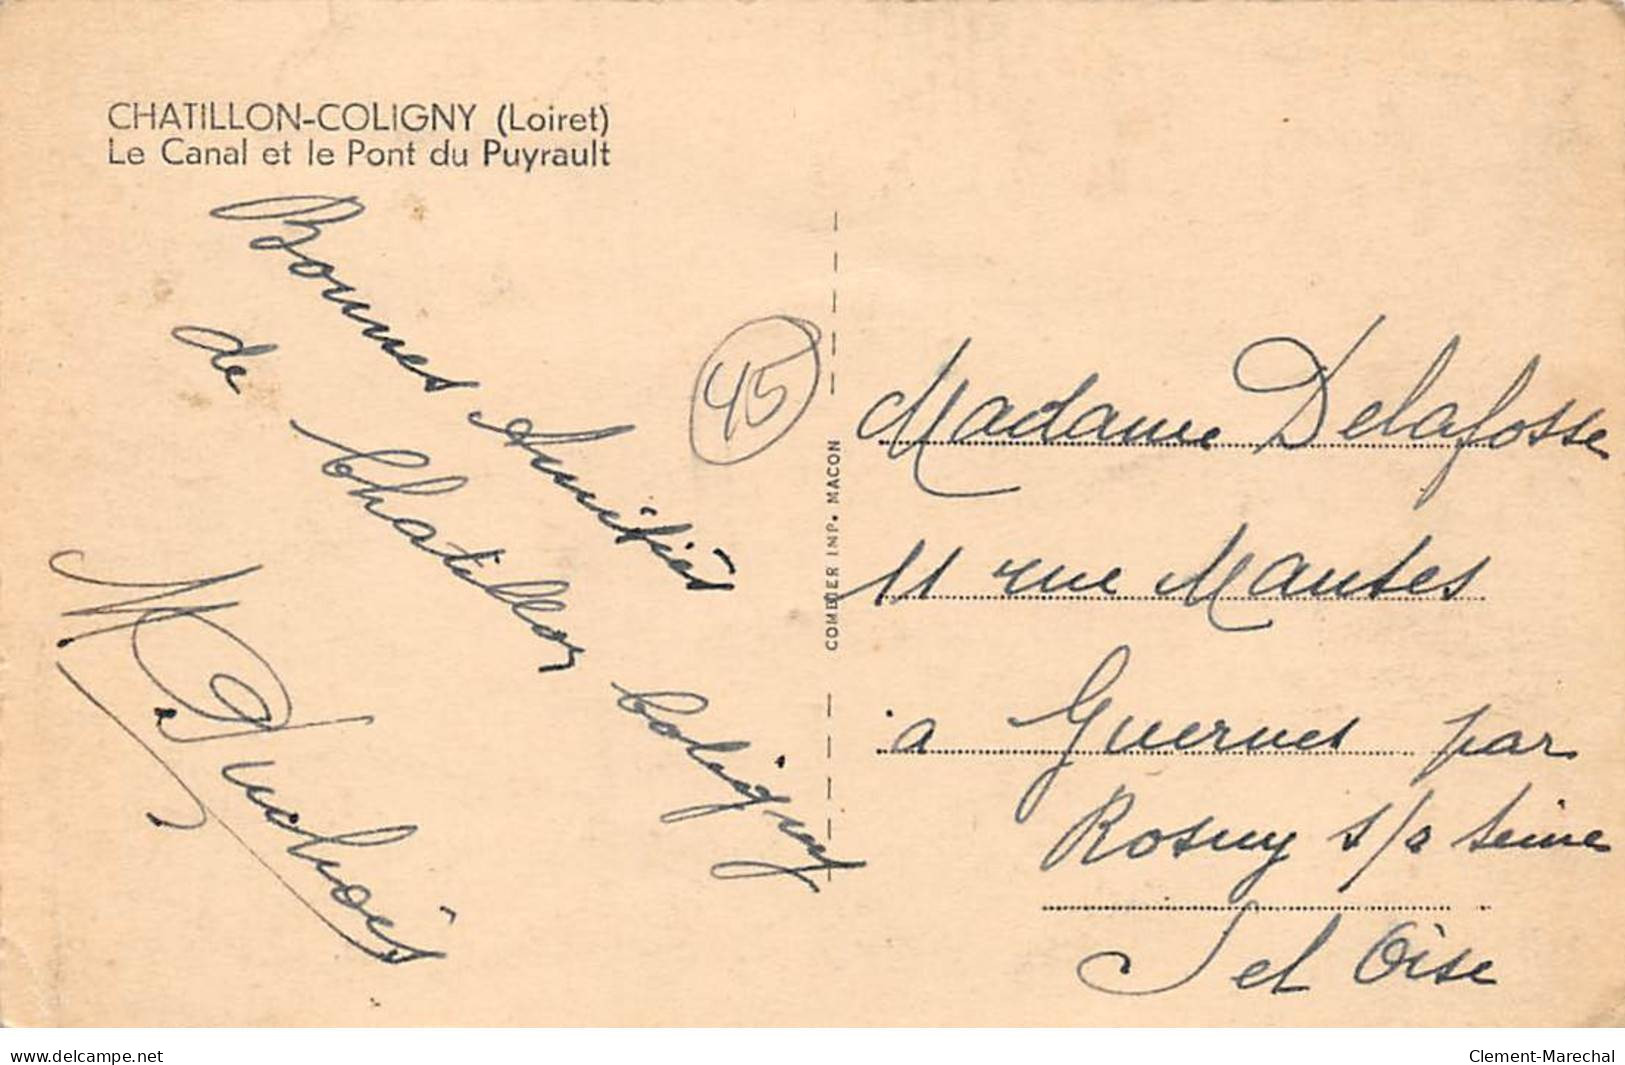 CHATILLON-COLIGNY (Loiret)
Le Canal et le Pont du Puyrault
Bonnes Amitiés
de Chatillon Coligny
M Duchois
45
COMBIER IMP. MACON
Madame Delafosse
11 rue Mantes
a Guernes par
Rosny s/a Seine
S et Oise
www.delcampe.net
Clement-Marechal